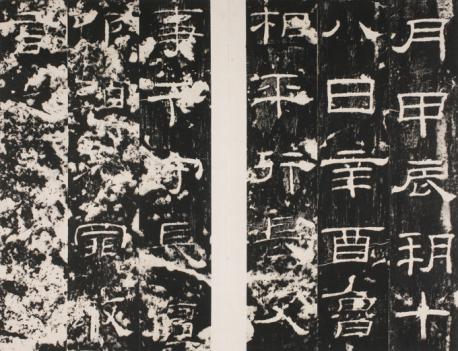 月甲辰朔十
八日辛酉魯
相平行長史
事卞守長擅
叩頭罪敢
言之